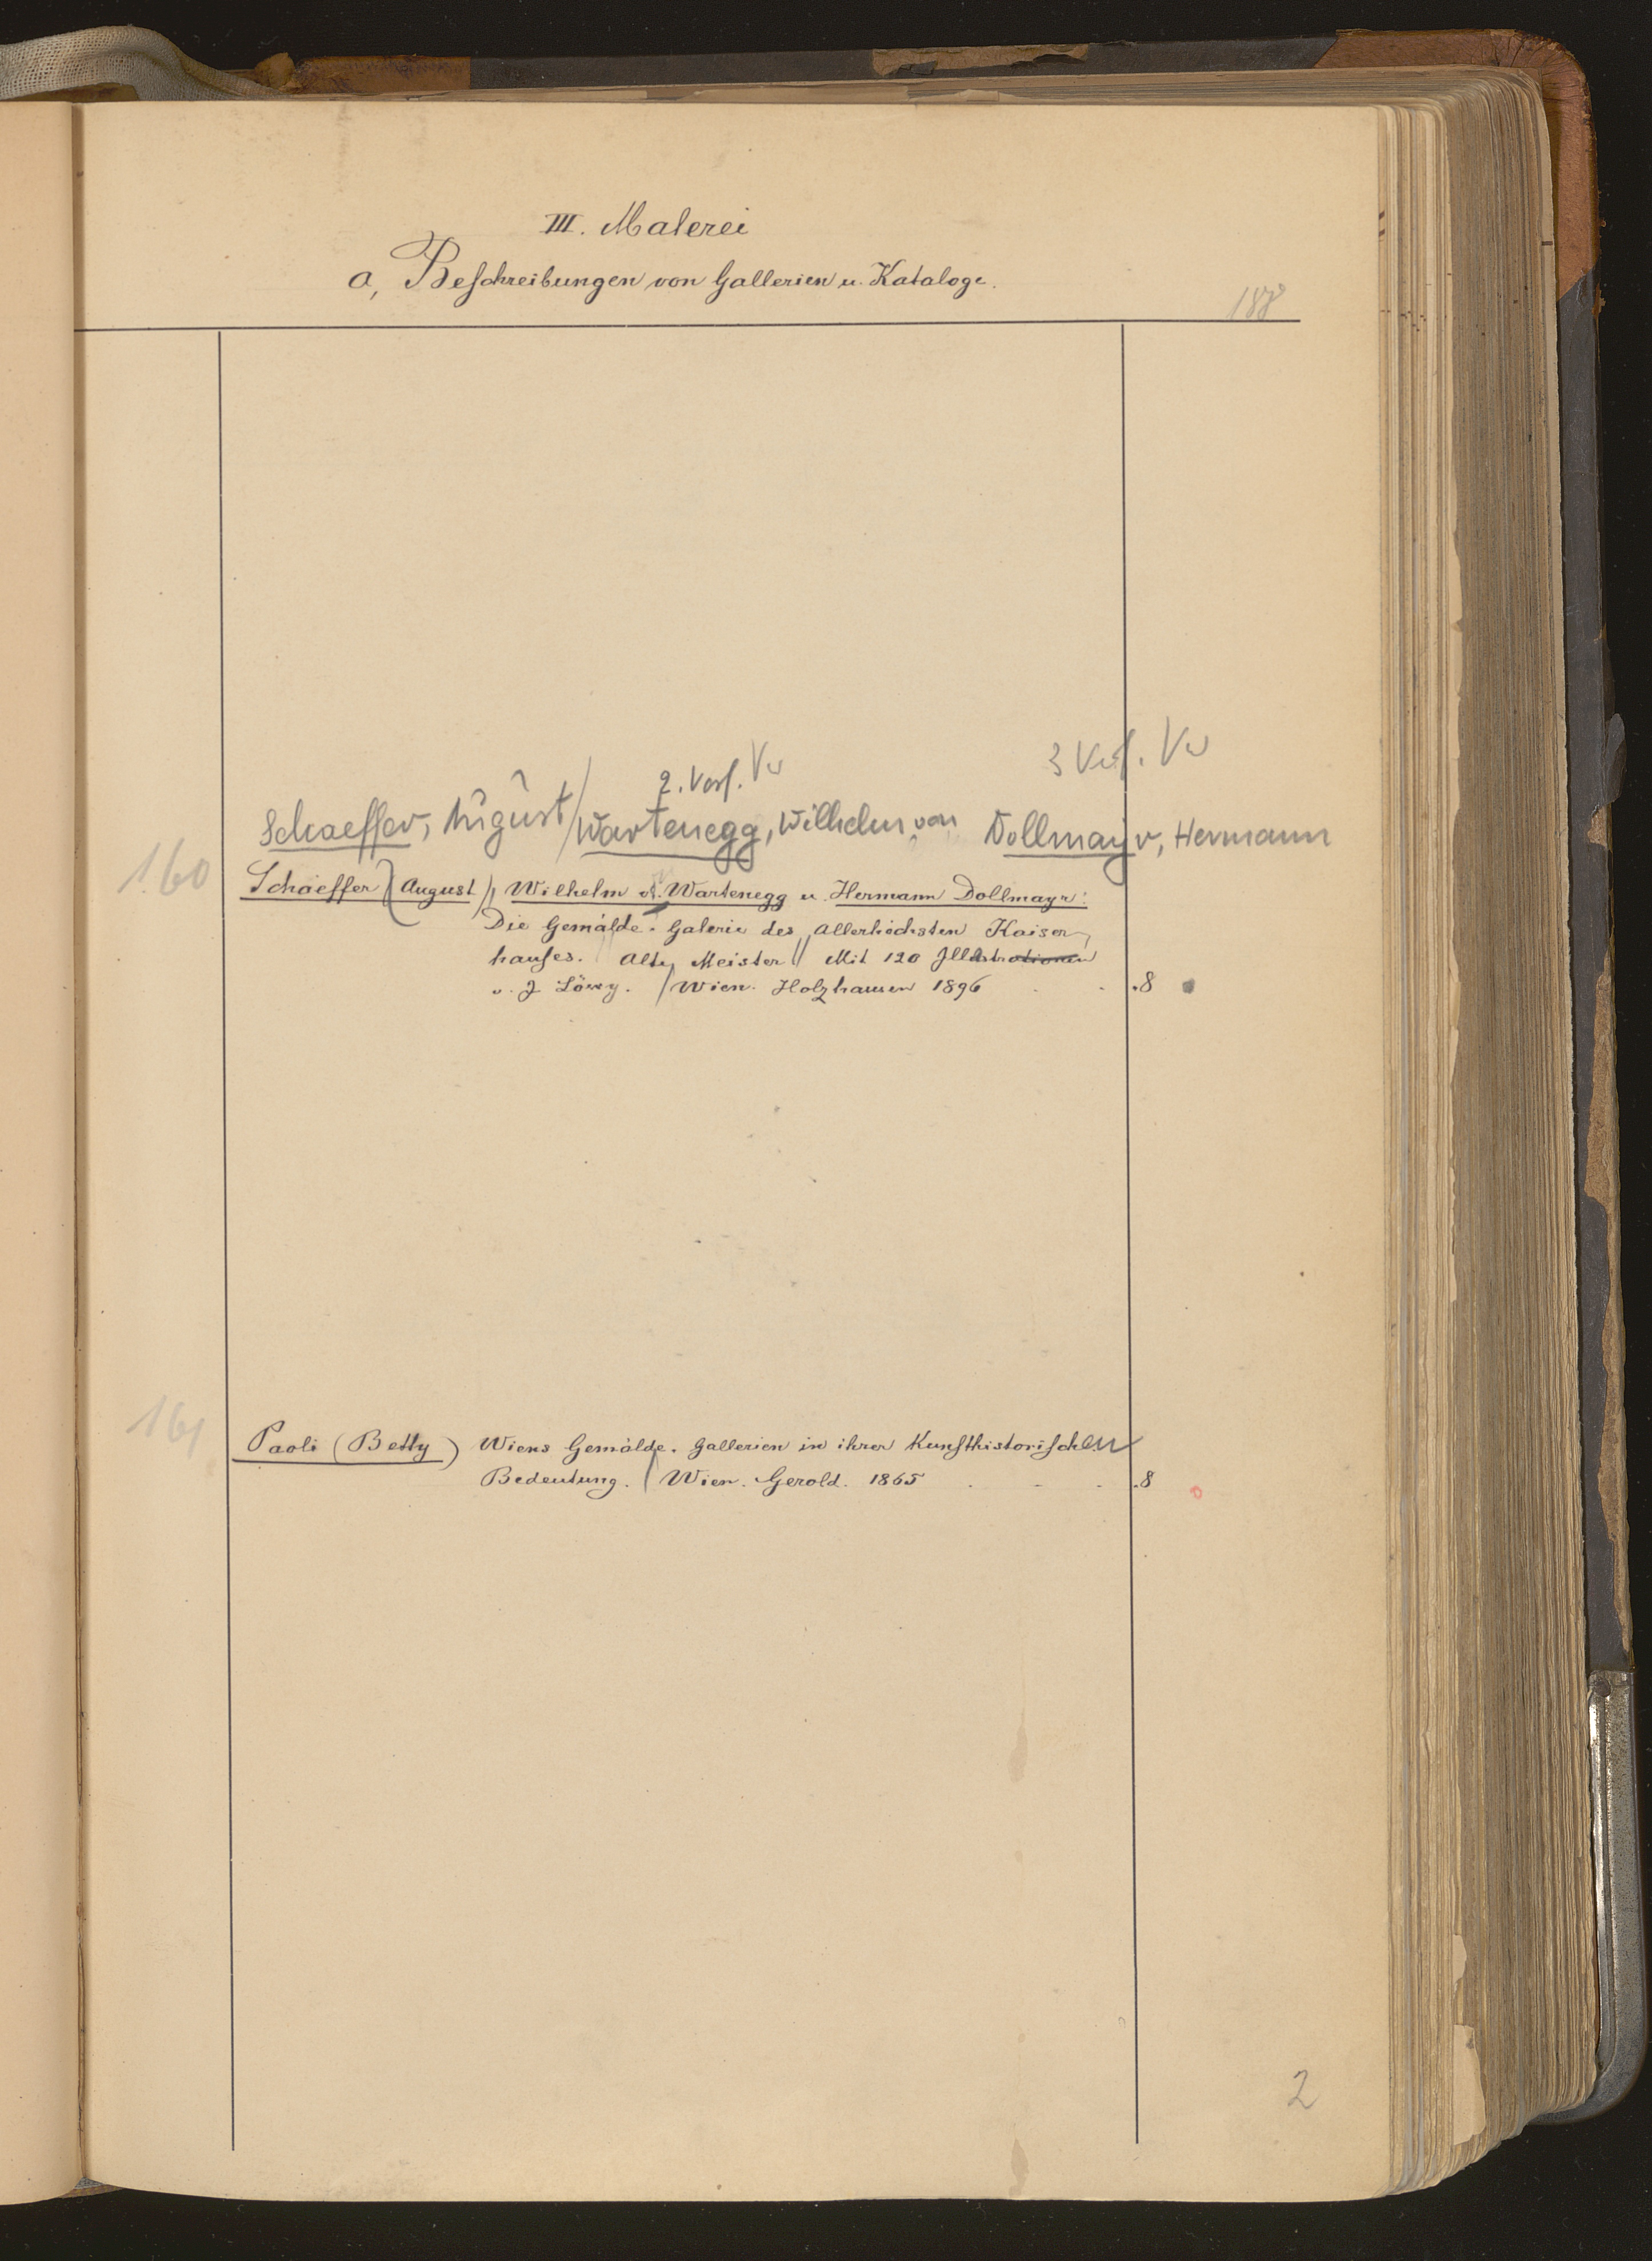 III. Malerei
a, Beschreibungen von Gallerien u. Kataloge.
188
2. Verf. Vw
3 Verf. Vw
Schaeffer, August / Wartenegg, Wilhelm von Dollmayr, Hermann
160
Schaeffer (August), Wilhelm v. Wartenegg u. Hermann Dollmayr:
Die Gemälde-Galerie des Allerhöchsten Kaiser-
hauses. Alte Meister // Mit 120 Illustrationen
v. J. Löwy. / Wien. Holzhausen 1896 . . .8
161
Paoli (Betty) Wiens Gemälde-Gallerien in ihrer kunsthistorischen
Bedeutung. / Wien. Gerold. 1865 . . . .8
2